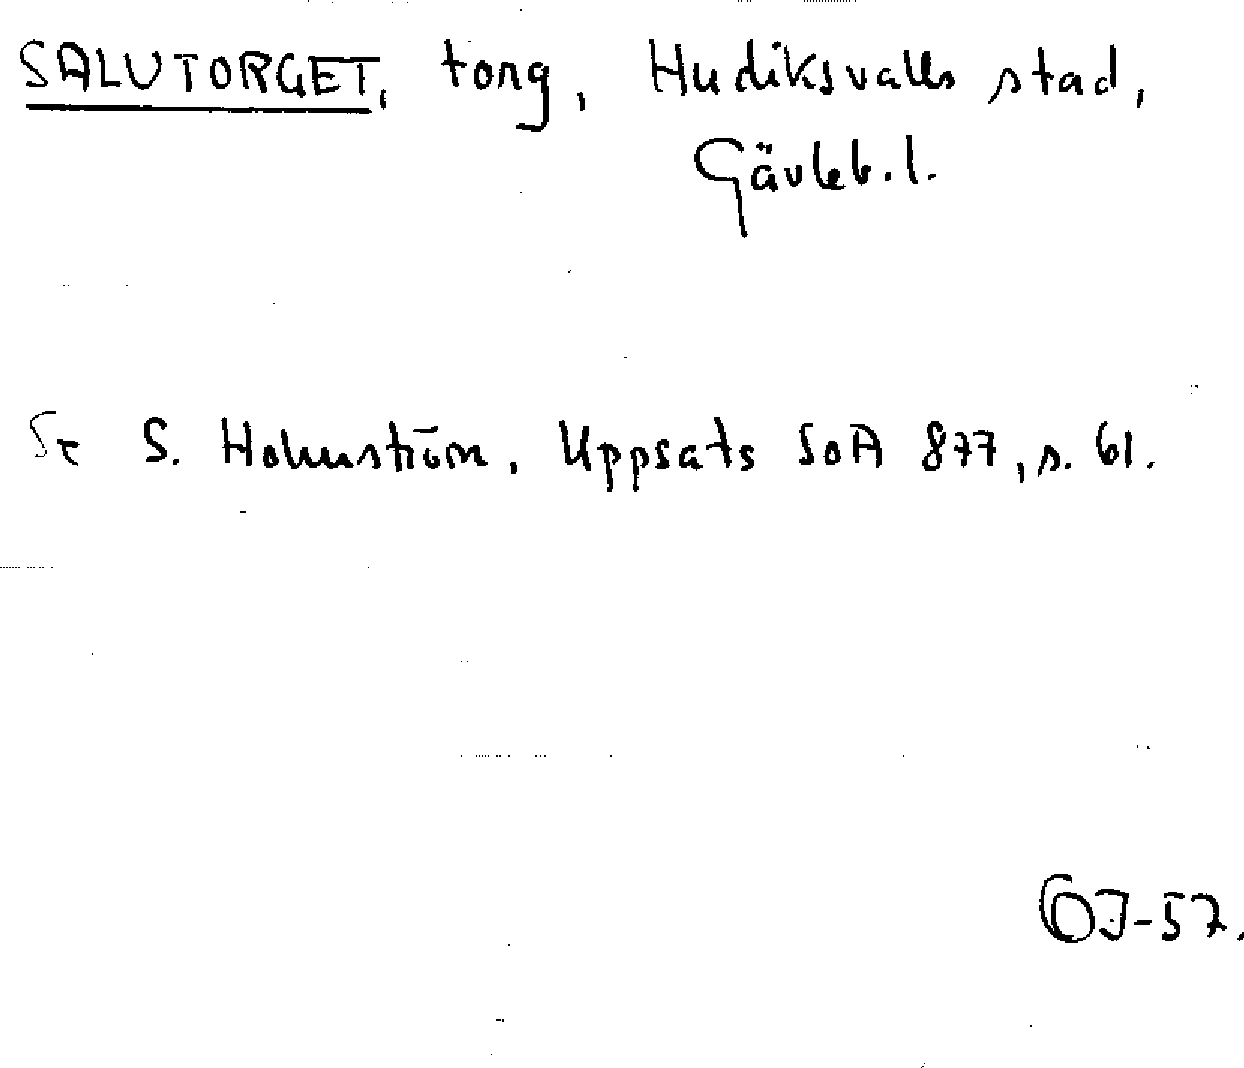 SALUTORGET, torg, Hudiksvalls stad,
Gävleb. l.
Se S. Holmström, Uppsats SOA 877, s. 61.
OJ-57.